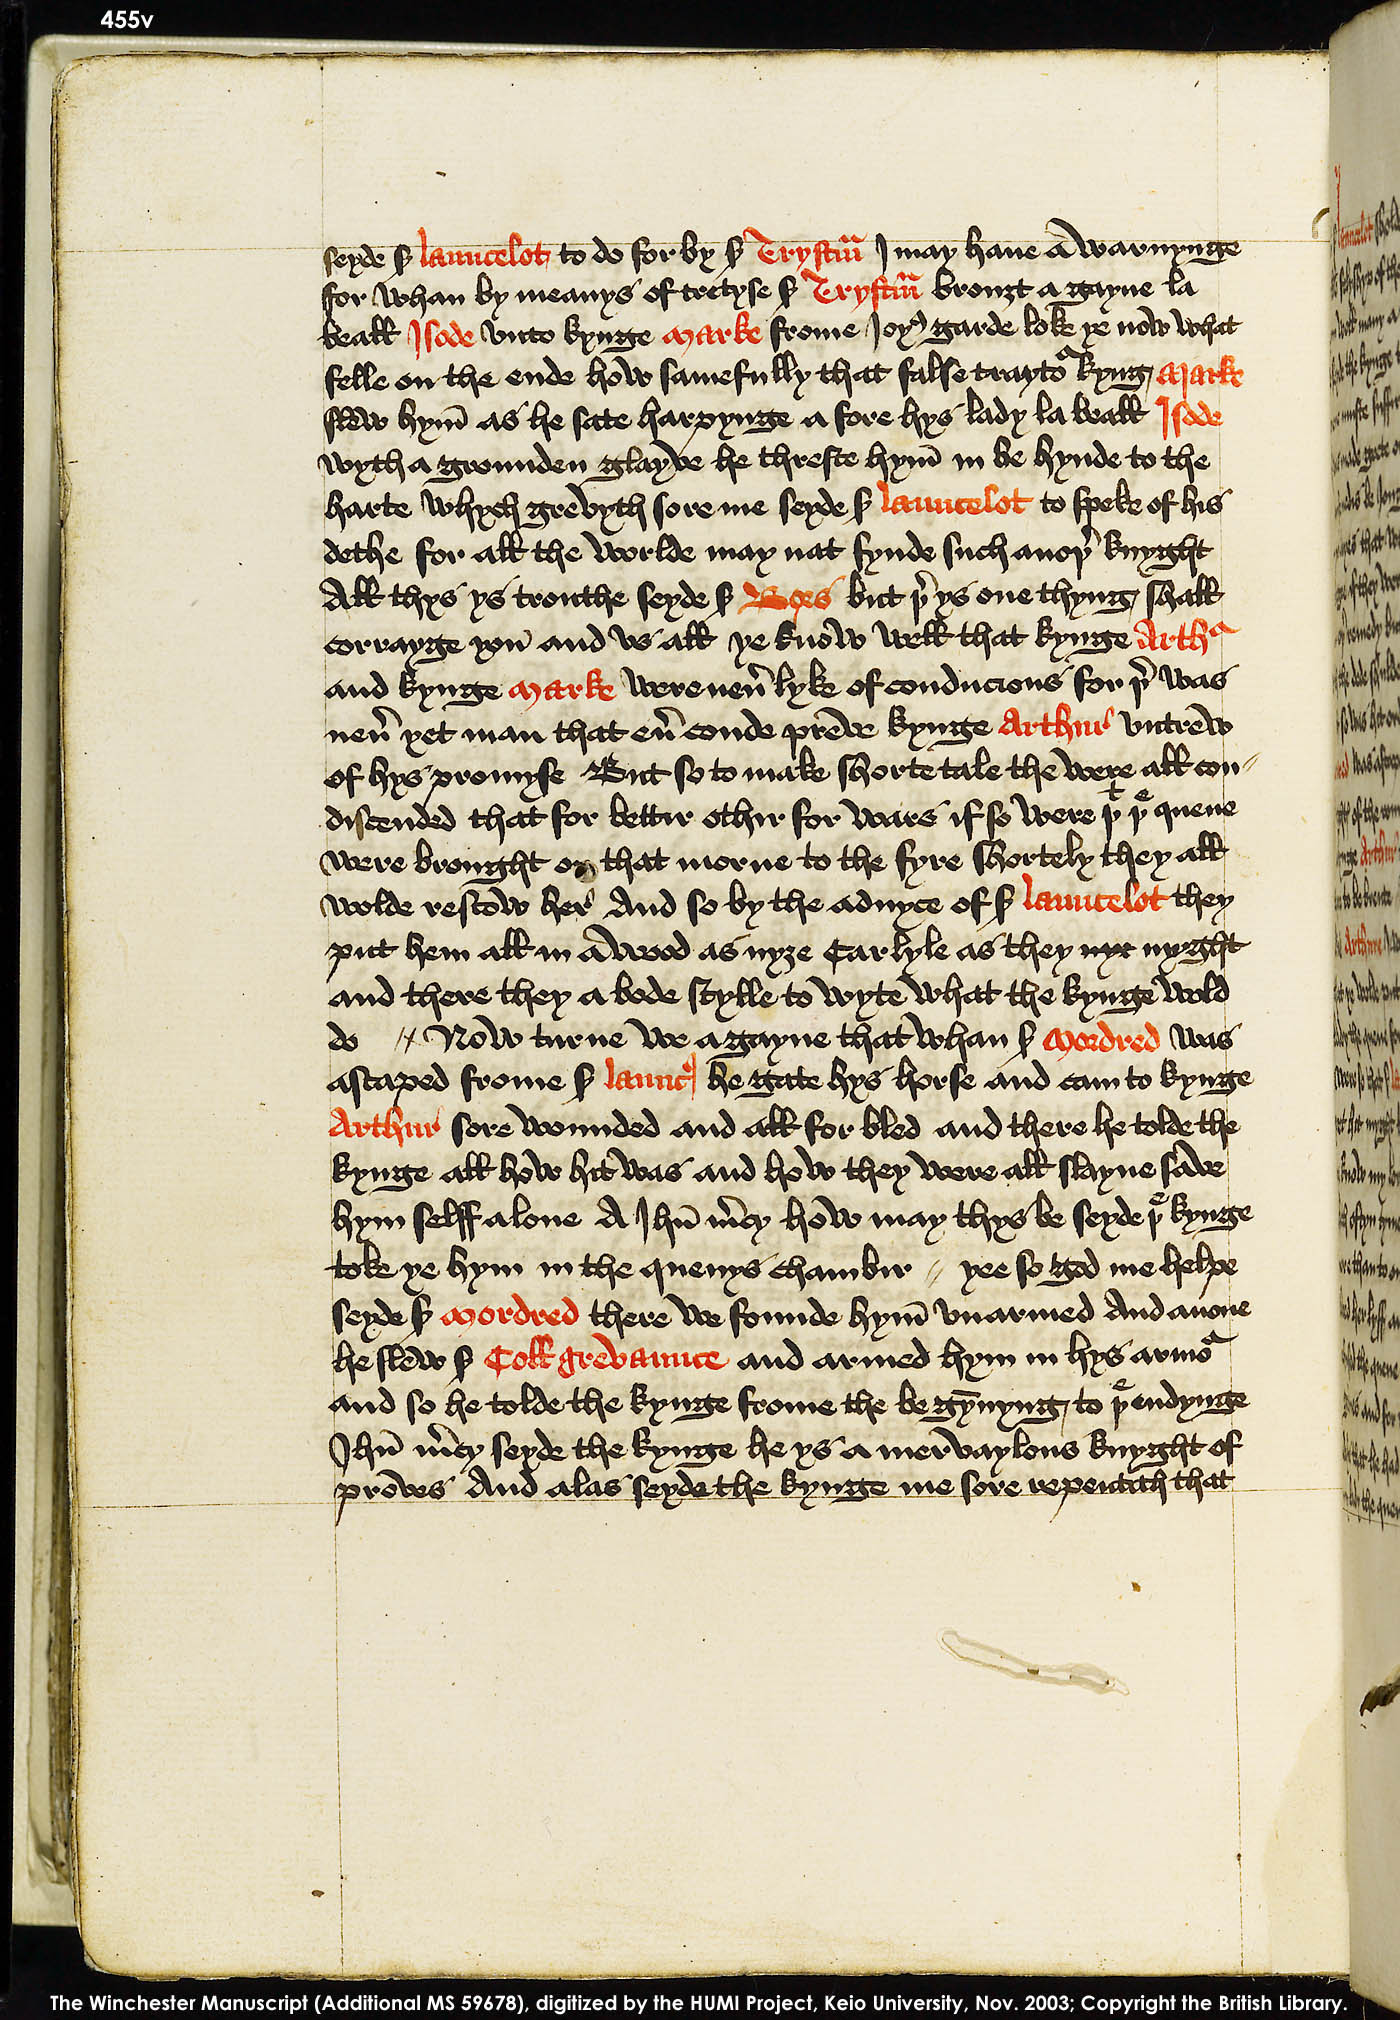 455v
seyde sʳ launcelot to do for by sʳ Trystrm̄ I may haue a warnynge
ffor whan by meanys of tretyse sʳ Trystrm̄ brouȝt a gayne la
beall Isode vnto kynge Marke frome Joyꝰ garde loke ye now what
felle on the ende how samefully that false traytoʳ kyng Marke
slew hym̄ as he sate harpynge a fore hys lady la beall Isode
wyth a grounden glayve he threste hym̄ in be hynde to the
harte whych grevyth sore me seyde sʳ launcelot to speke of his
dethe for all the worlde may nat fynde such anoþʳ knyght
All thys ys trouthe seyde sʳ Bors but þʳ ys one thyng shall
corrayge you and vs all ye know well that kynge Arthʳ
and kynge Marke were neuʳ lyke of conducions for þʳ was
neuʳ yet man that euʳ coude preve kynge Arthur vntrew
of hys promyse But so to make shorte tale the were all con
discended that for bettir othir for wars if so were þᵗ þᵉ quene
were brought on that morne to the fyre shortely they all
wolde rescow her And so by the aduyce of sʳ launcelot they
put hem all in a wood as nyȝe Carlyle as they nyr nyght
and there they a bode stylle to wyte what the kynge wold
do // Now turne we agayne that whan sʳ Mordred was
ascaped frome sʳ launcꝰ he gate hys horse and cam to kynge
Arthur sore wounded and all for bled and there he tolde the
kynge all how hit was and how they were all slayne save
hym selff alone A Jhū m̄cy how may thys be seyde þᵉ kynge
toke ye hym in the quenys chambir // yee so god me helpe
seyde sʳ Mordred there we founde hym̄ vnarmed And anone
he slew sʳ Collgrevaunce and armed hym in hys armoʳ
and so he tolde the kynge frome the be gȳnyng to þᵉ endynge
Jhū m̄cy seyde the kynge he ys a mervaylous knyght of
proves And alas seyde the kynge me sore repentith that
The Winchester Manuscript (Additional MS 59678), digitized by the HUMI Project, Keio University, Nov. 2003; Copyright the British Library.